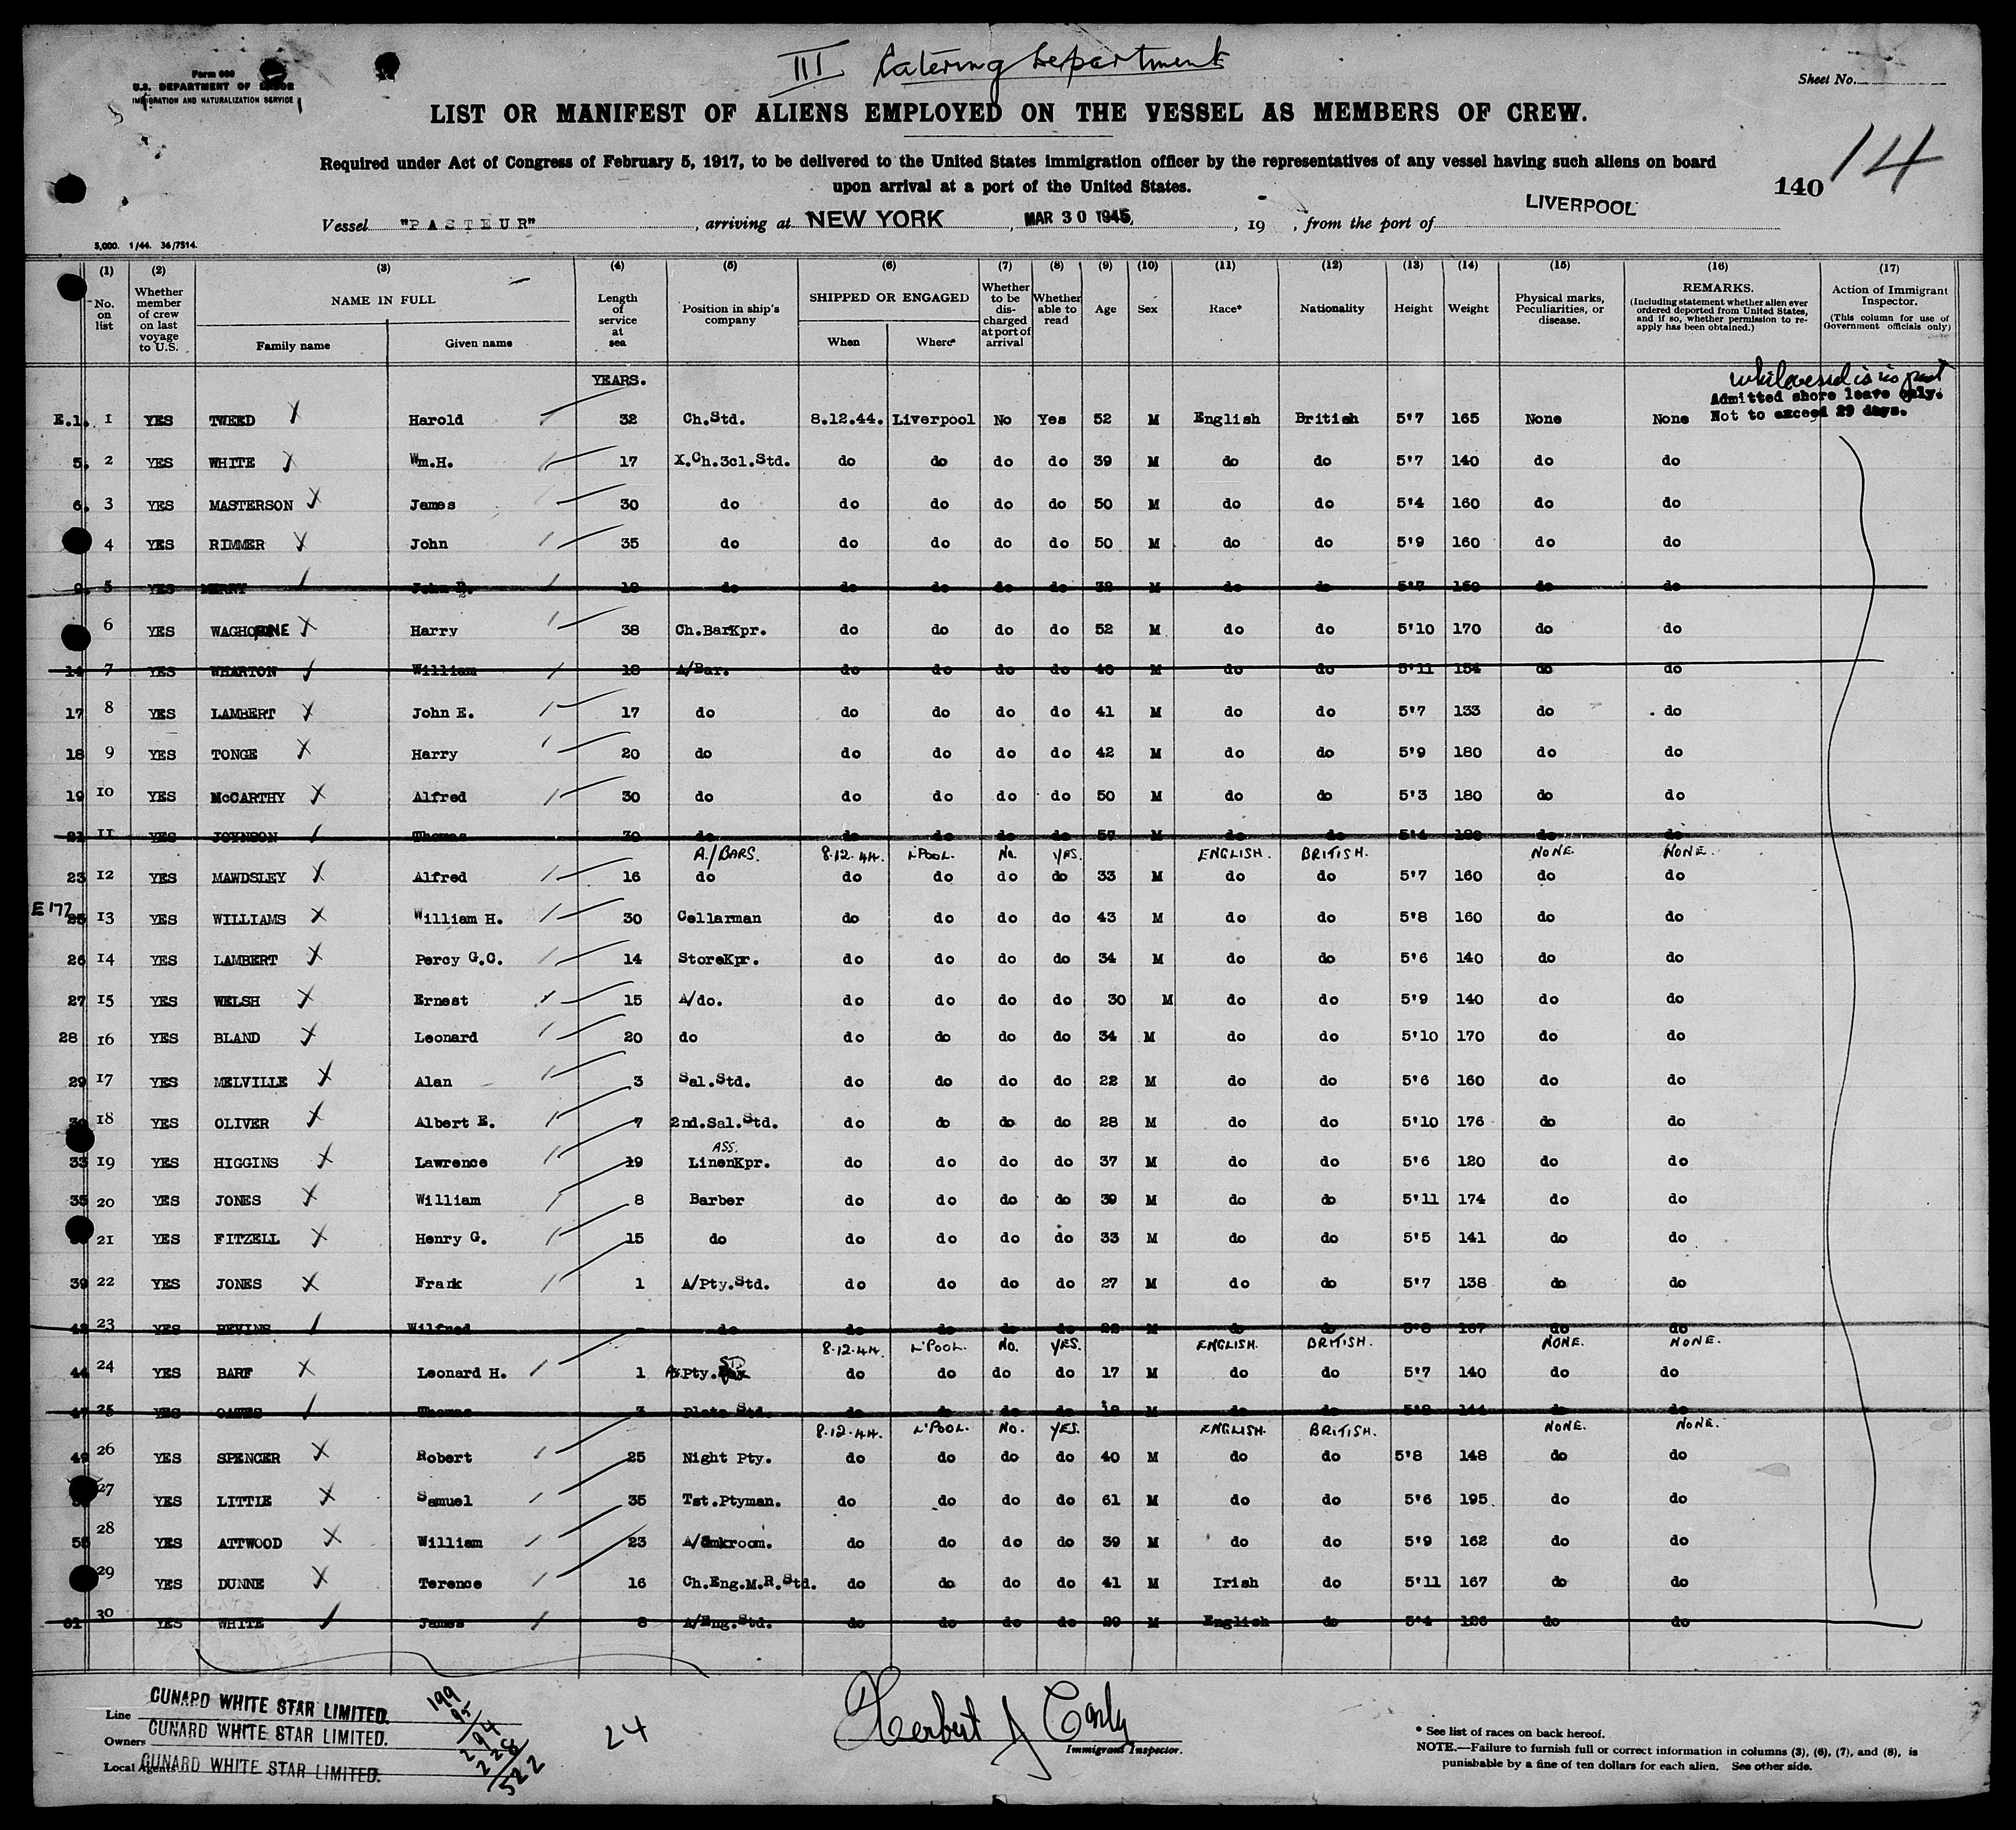 III Catering Department
Form 680
U.S. DEPARTMENT OF LABOR
IMMIGRATION AND NATURALIZATION SERVICE
Sheet No.
LIST OR MANIFEST OF ALIENS EMPLOYED ON THE VESSEL AS MEMBERS OF CREW.
Required under Act of Congress of February 5, 1917, to be delivered to the United States immigration officer by the representatives of any vessel having such aliens on board
upon arrival at a port of the United States.
140 14
Vessel "PASTEUR", arriving at NEW YORK, MAR 30 1945, 19 , from the port of LIVERPOOL
5,000. 1/44. 36/7514.
(1) (2) (3) (4) (5) (6) (7) (8) (9) (10) (11) (12) (13) (14) (15) (16) (17)
No. on list
Whether member of crew on last voyage to U.S.
NAME IN FULL
Family name Given name
Length of service at sea
Position in ship's company
SHIPPED OR ENGAGED
When Where*
Whether to be discharged at port of arrival
Whether able to read
Age
Sex
Race*
Nationality
Height
Weight
Physical marks, Peculiarities, or disease.
REMARKS.
(Including statement whether alien ever ordered deported from United States, and if so, whether permission to reapply has been obtained.)
Action of Immigrant Inspector.
(This column for use of Government officials only)
YEARS.
while vessel is in port
Admitted shore leave only.
Not to exceed 29 days.
E.1. 1 YES TWEED Harold 32 Ch.Std. 8.12.44. Liverpool No Yes 52 M English British 5'7 165 None None
5. 2 YES WHITE Wm.H. 17 X.Ch.3cl.Std. do do do do 39 M do do 5'7 140 do do
6. 3 YES MASTERSON James 30 do do do do do 50 M do do 5'4 160 do do
4 YES RIMMER John 35 do do do do do 50 M do do 5'9 160 do do
5 YES MERRY John do do do do do M do do 5'7 do do
6 YES WAGHORNE Harry 38 Ch.BarKpr. do do do do 52 M do do 5'10 170 do do
14 7 YES WHARTON William 18 A/Bar. do do do do 40 M do do 5'11 154 do do
17 8 YES LAMBERT John E. 17 do do do do do 41 M do do 5'7 133 do do
18 9 YES TONGE Harry 20 do do do do do 42 M do do 5'9 180 do do
19 10 YES McCARTHY Alfred 30 do do do do do 50 M do do 5'3 180 do do
21 11 YES JOHNSON Thomas 30 do do do do do 57 M do do 5'4 do do
A./BARS. 8.12.44. L'POOL. No. YES. ENGLISH. BRITISH. NONE. NONE.
23 12 YES MAWDSLEY Alfred 16 do do do do do 33 M do do 5'7 160 do do
E177 25 13 YES WILLIAMS William H. 30 Cellarman do do do do 43 M do do 5'8 160 do do
26 14 YES LAMBERT Percy G.C. 14 StoreKpr. do do do do 34 M do do 5'6 140 do do
27 15 YES WELSH Ernest 15 A/do. do do do do 30 M do do 5'9 140 do do
28 16 YES BLAND Leonard 20 do do do do do 34 M do do 5'10 170 do do
29 17 YES MELVILLE Alan 3 Sal.Std. do do do do 22 M do do 5'6 160 do do
18 YES OLIVER Albert E. 7 2nd.Sal.Std. do do do do 28 M do do 5'10 176 do do
ASS.
33 19 YES HIGGINS Lawrence 19 LinenKpr. do do do do 37 M do do 5'6 120 do do
35 20 YES JONES William 8 Barber do do do do 39 M do do 5'11 174 do do
21 YES FITZELL Henry G. 15 do do do do do 33 M do do 5'5 141 do do
39 22 YES JONES Frank 1 A/Pty.Std. do do do do 27 M do do 5'7 138 do do
23 YES BEVINS Wilfred - do do do do do M do do 5'8 167 do do
8.12.44. L'POOL. No. YES. ENGLISH. BRITISH. NONE. NONE.
44 24 YES BARF Leonard H. 1 Pty. STD do do do do 17 M do do 5'7 140 do do
47 25 YES OATES Thomas 3 Plate Std. do do do do 18 M do do 5'8 144 do do
8.12.44. L'POOL. No. YES. ENGLISH. BRITISH. NONE. NONE.
26 YES SPENCER Robert 25 Night Pty. do do do do 40 M do do 5'8 148 do do
27 YES LITTLE Samuel 35 Tst.Ptyman. do do do do 61 M do do 5'6 195 do do
28 YES ATTWOOD William 23 A/Smkroom. do do do do 39 M do do 5'9 162 do do
29 YES DUNNE Terence 16 Ch.Eng.M.R.Std. do do do do 41 M Irish do 5'11 167 do do
61 30 YES WHITE James 8 A/Eng.Std. do do do do 29 M English do 5'4 126 do do
Line CUNARD WHITE STAR LIMITED.
Owners CUNARD WHITE STAR LIMITED.
Local Agents CUNARD WHITE STAR LIMITED.
199
95
294
228
522
24
Immigrant Inspector.
* See list of races on back hereof.
NOTE.—Failure to furnish full or correct information in columns (3), (6), (7), and (8), is
punishable by a fine of ten dollars for each alien. See other side.